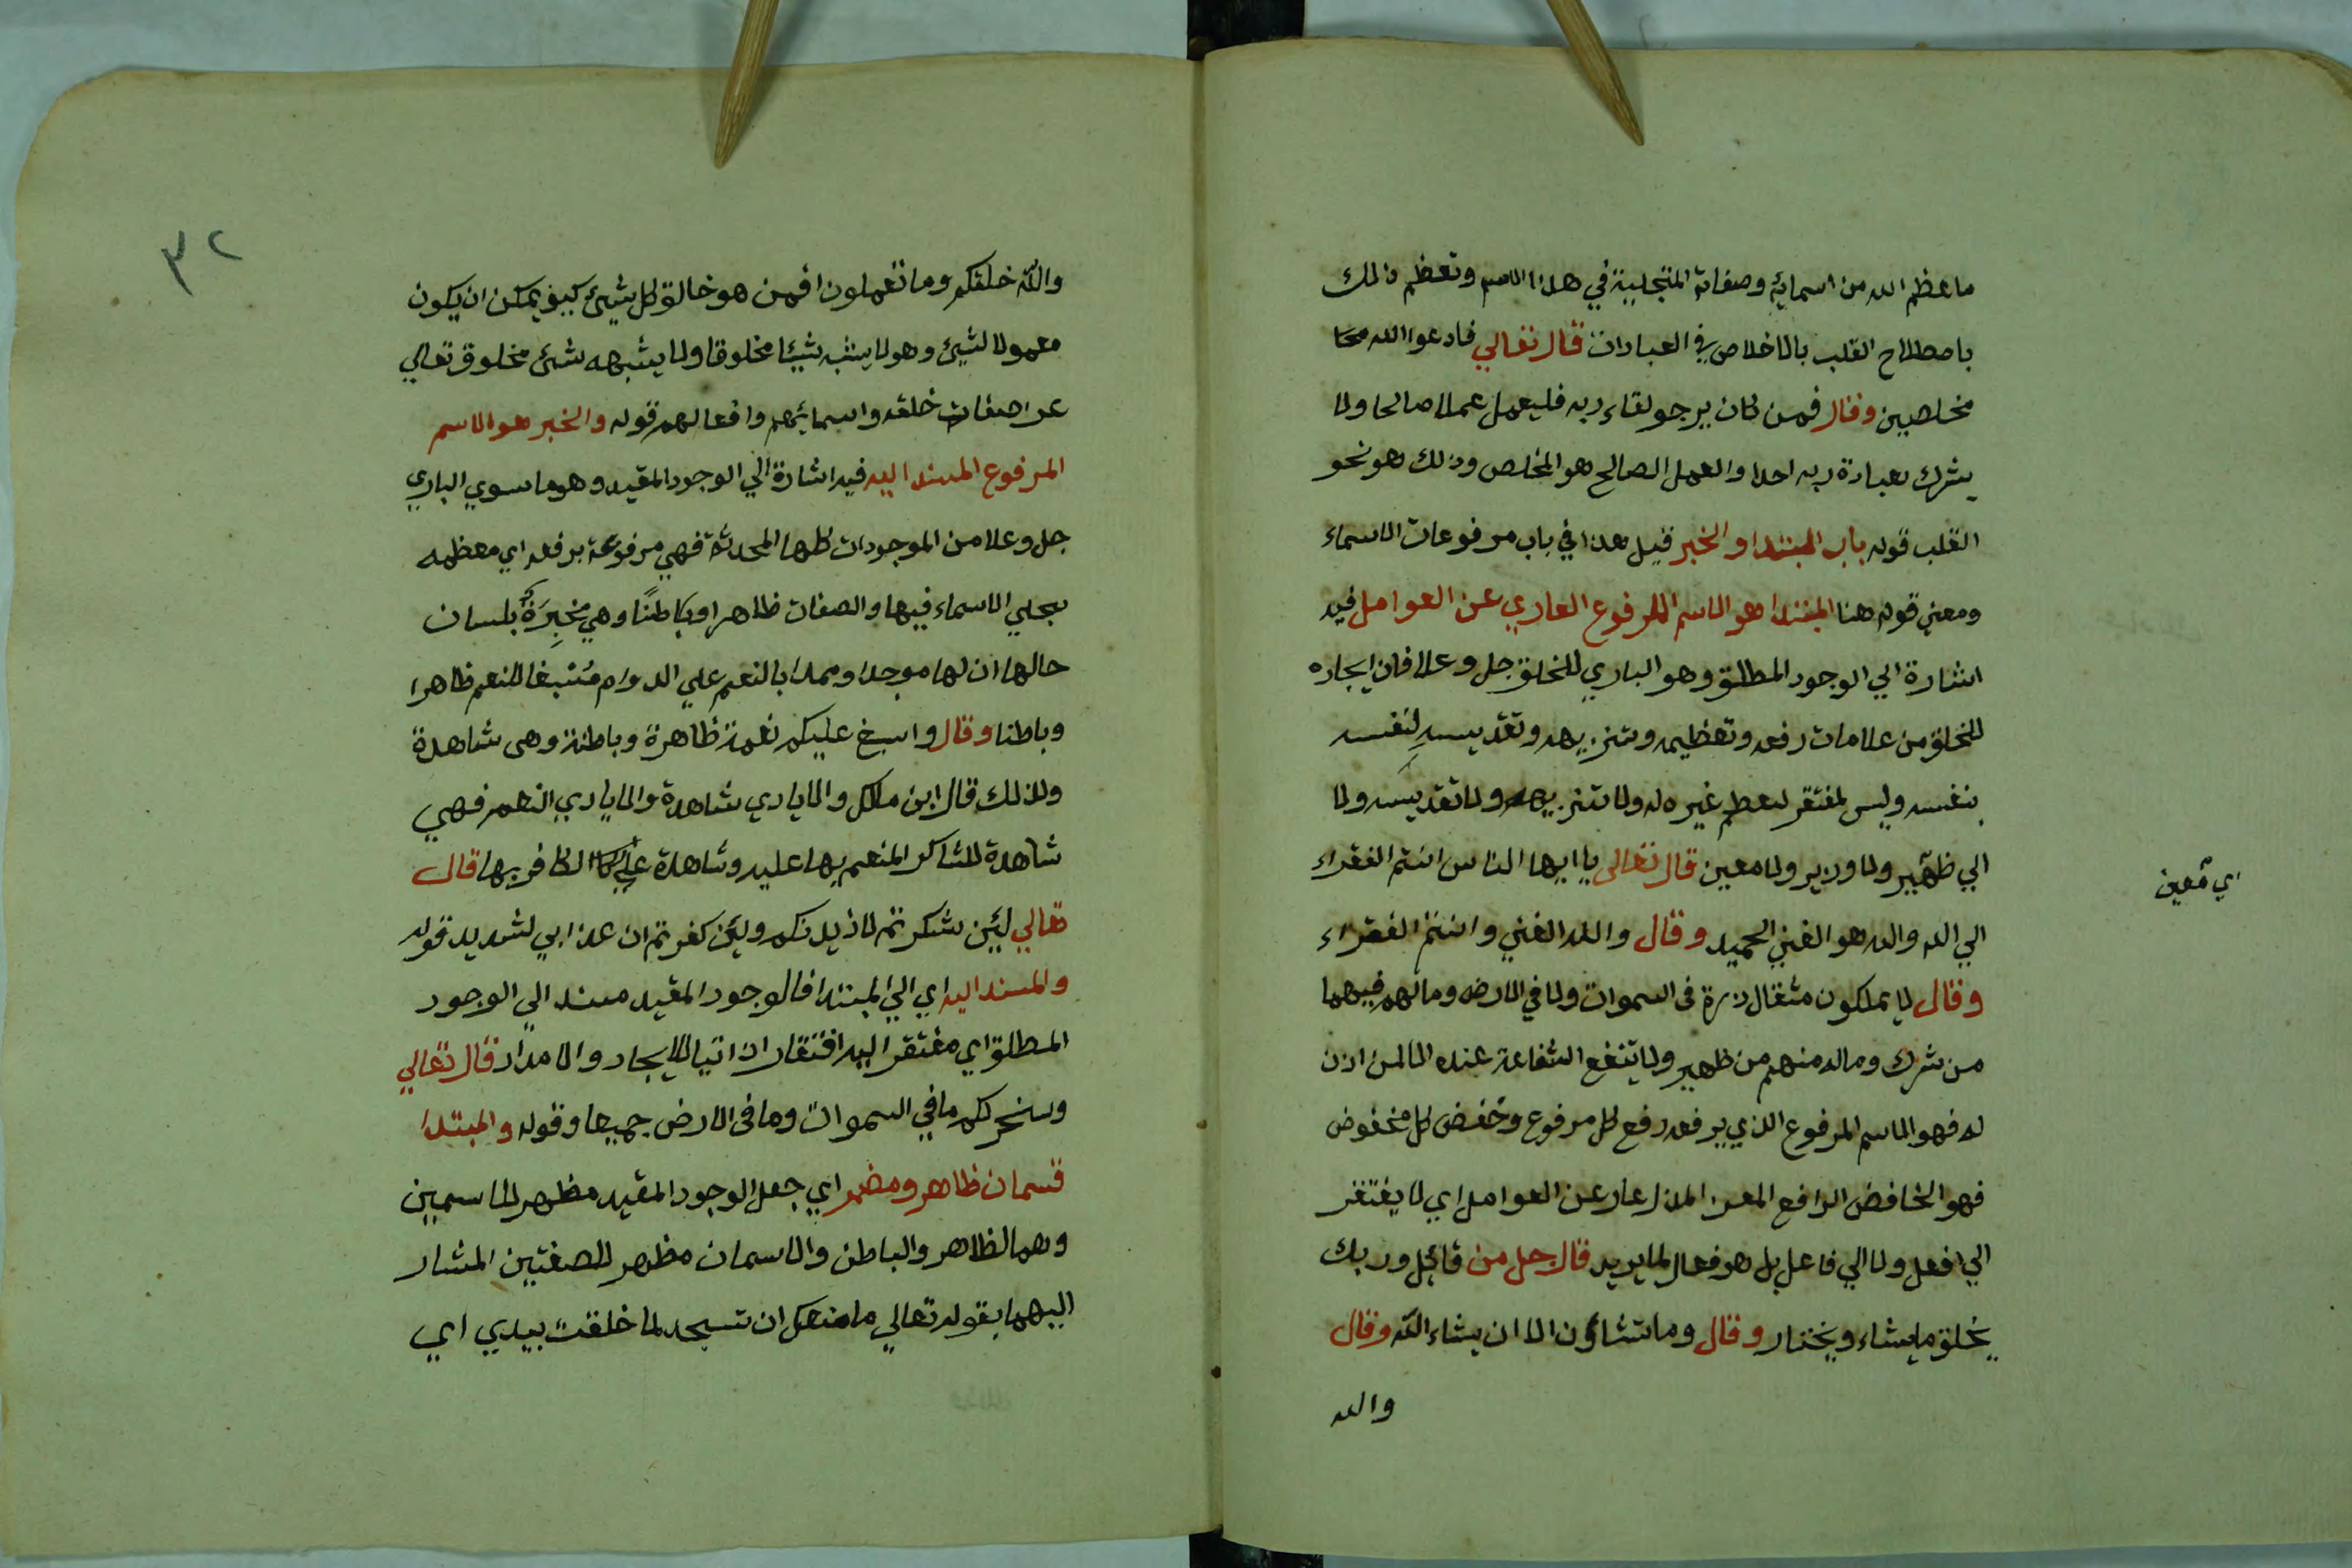 ما عظم الله من اسمايه وصفاته المتجلية في هذا الاسم وتعظم ذلك
باصطلاح القلب بالاخلاص في العبادات قال تعالي فادعوا الله
مخلصين وقال فمن كان يرجو لقاء ربه فليعمل عملا صالحا ولا
يشرك بعبادة ربه احدا والعمل الصالح هو المخلص وذلك هو نحو
القلب قوله باب المبتدا والخبر قيل هذا في باب مرفوعات الاسماء
ومعني قوله هنا المبتدا هو الاسم المرفوع العاري عن العوامل فيه
اشارة الي الوجود المطلق وهو الباري للخلق جل وعلا فان ايجاده
للخلق من علامات رفعه وتعظيمه وتنزيهه وتقديسه لنفسه
بنفسه وليس لمفتقر لعظم غيره له ولا تنزيهه ولا تقديسه ولا
الي ظهير ولا وزير ولا معين قال تعالى يا ايها الناس انتم الفقراء
اي معين
الي الله والله هو الغني الحميد وقال والله الغني وانتم الفقراء
وقال لا يملكون مثقال ذرة في السموات ولا في الارض ومالهم فيهما
من شرك وماله منهم من ظهير ولا تنفع الشفاعة عنده الا لمن اذن
له فهو الاسم المرفوع الذي يرفعه رفع كل مرفوع وخفض كل مخفوض
فهو الخافض الرافع المعز المذل عار عن العوامل اي لا يفتقر
الي افعل ولا الي فاعل بل هو فعال لما يريد قال جل من قائل وربك
يخلق ما يشاء ويختار وقال وما تشاؤن الا ان يشاء الله وقال
والله
٣٢
والله خلقكم وما تعملون افمن هو خالق كل شيئ كيف يمكن ان يكون
معمولا لشيئ وهو لا يشبه شيئا مخلوقا ولا يشبهه شئ مخلوق تعالي
عن صفات خلقه واسمائهم وافعالهم قوله والخبر هو الاسم
المرفوع المسند اليه فيه اشارة الي الوجود المقيد وهو ما سوي الباري
جل وعلا من الموجودات كلها المحدثة فهي مرفوعة برفعه اي معظمه
بجلي الاسماء فيها والصفات ظاهرا وباطنًا وهي مخبِرَةٌ بلسان
حالها ان لها موجدا وممدا بالنعم علي الدوام مُسْبغا للنعم ظاهرا
وباطنا وقال واسبغ عليكم نعمه ظاهرة وباطنة وهى شاهدة
ولذلك قال ابن مالك والايادي شاهدة والايادي النعم فهي
شاهدة للشاكر المنعم بها عليه وشاهدة علي الكافر بها قال
تعالي لئن شكرتم لازيدنكم ولئن كفرتم ان عذابي لشديد قوله
والمسند اليه اي الي المبتدا فالوجود المقيد مسند الي الوجود
المطلق اي مفتقر اليه افتقارا ذاتيا للايجاد والامداد قال تعالي
وسخر لكم ما في السموات وما في الارض جميعا وقوله والمبتدا
قسمان ظاهر ومضمر اي جعل الوجود المقيد مظهر للاسمين
وهما الظاهر والباطن والاسمان مظهر للصفتين المشار
اليهما بقوله تعالي ما منعك ان تسجد لما خلقت بيدي اي